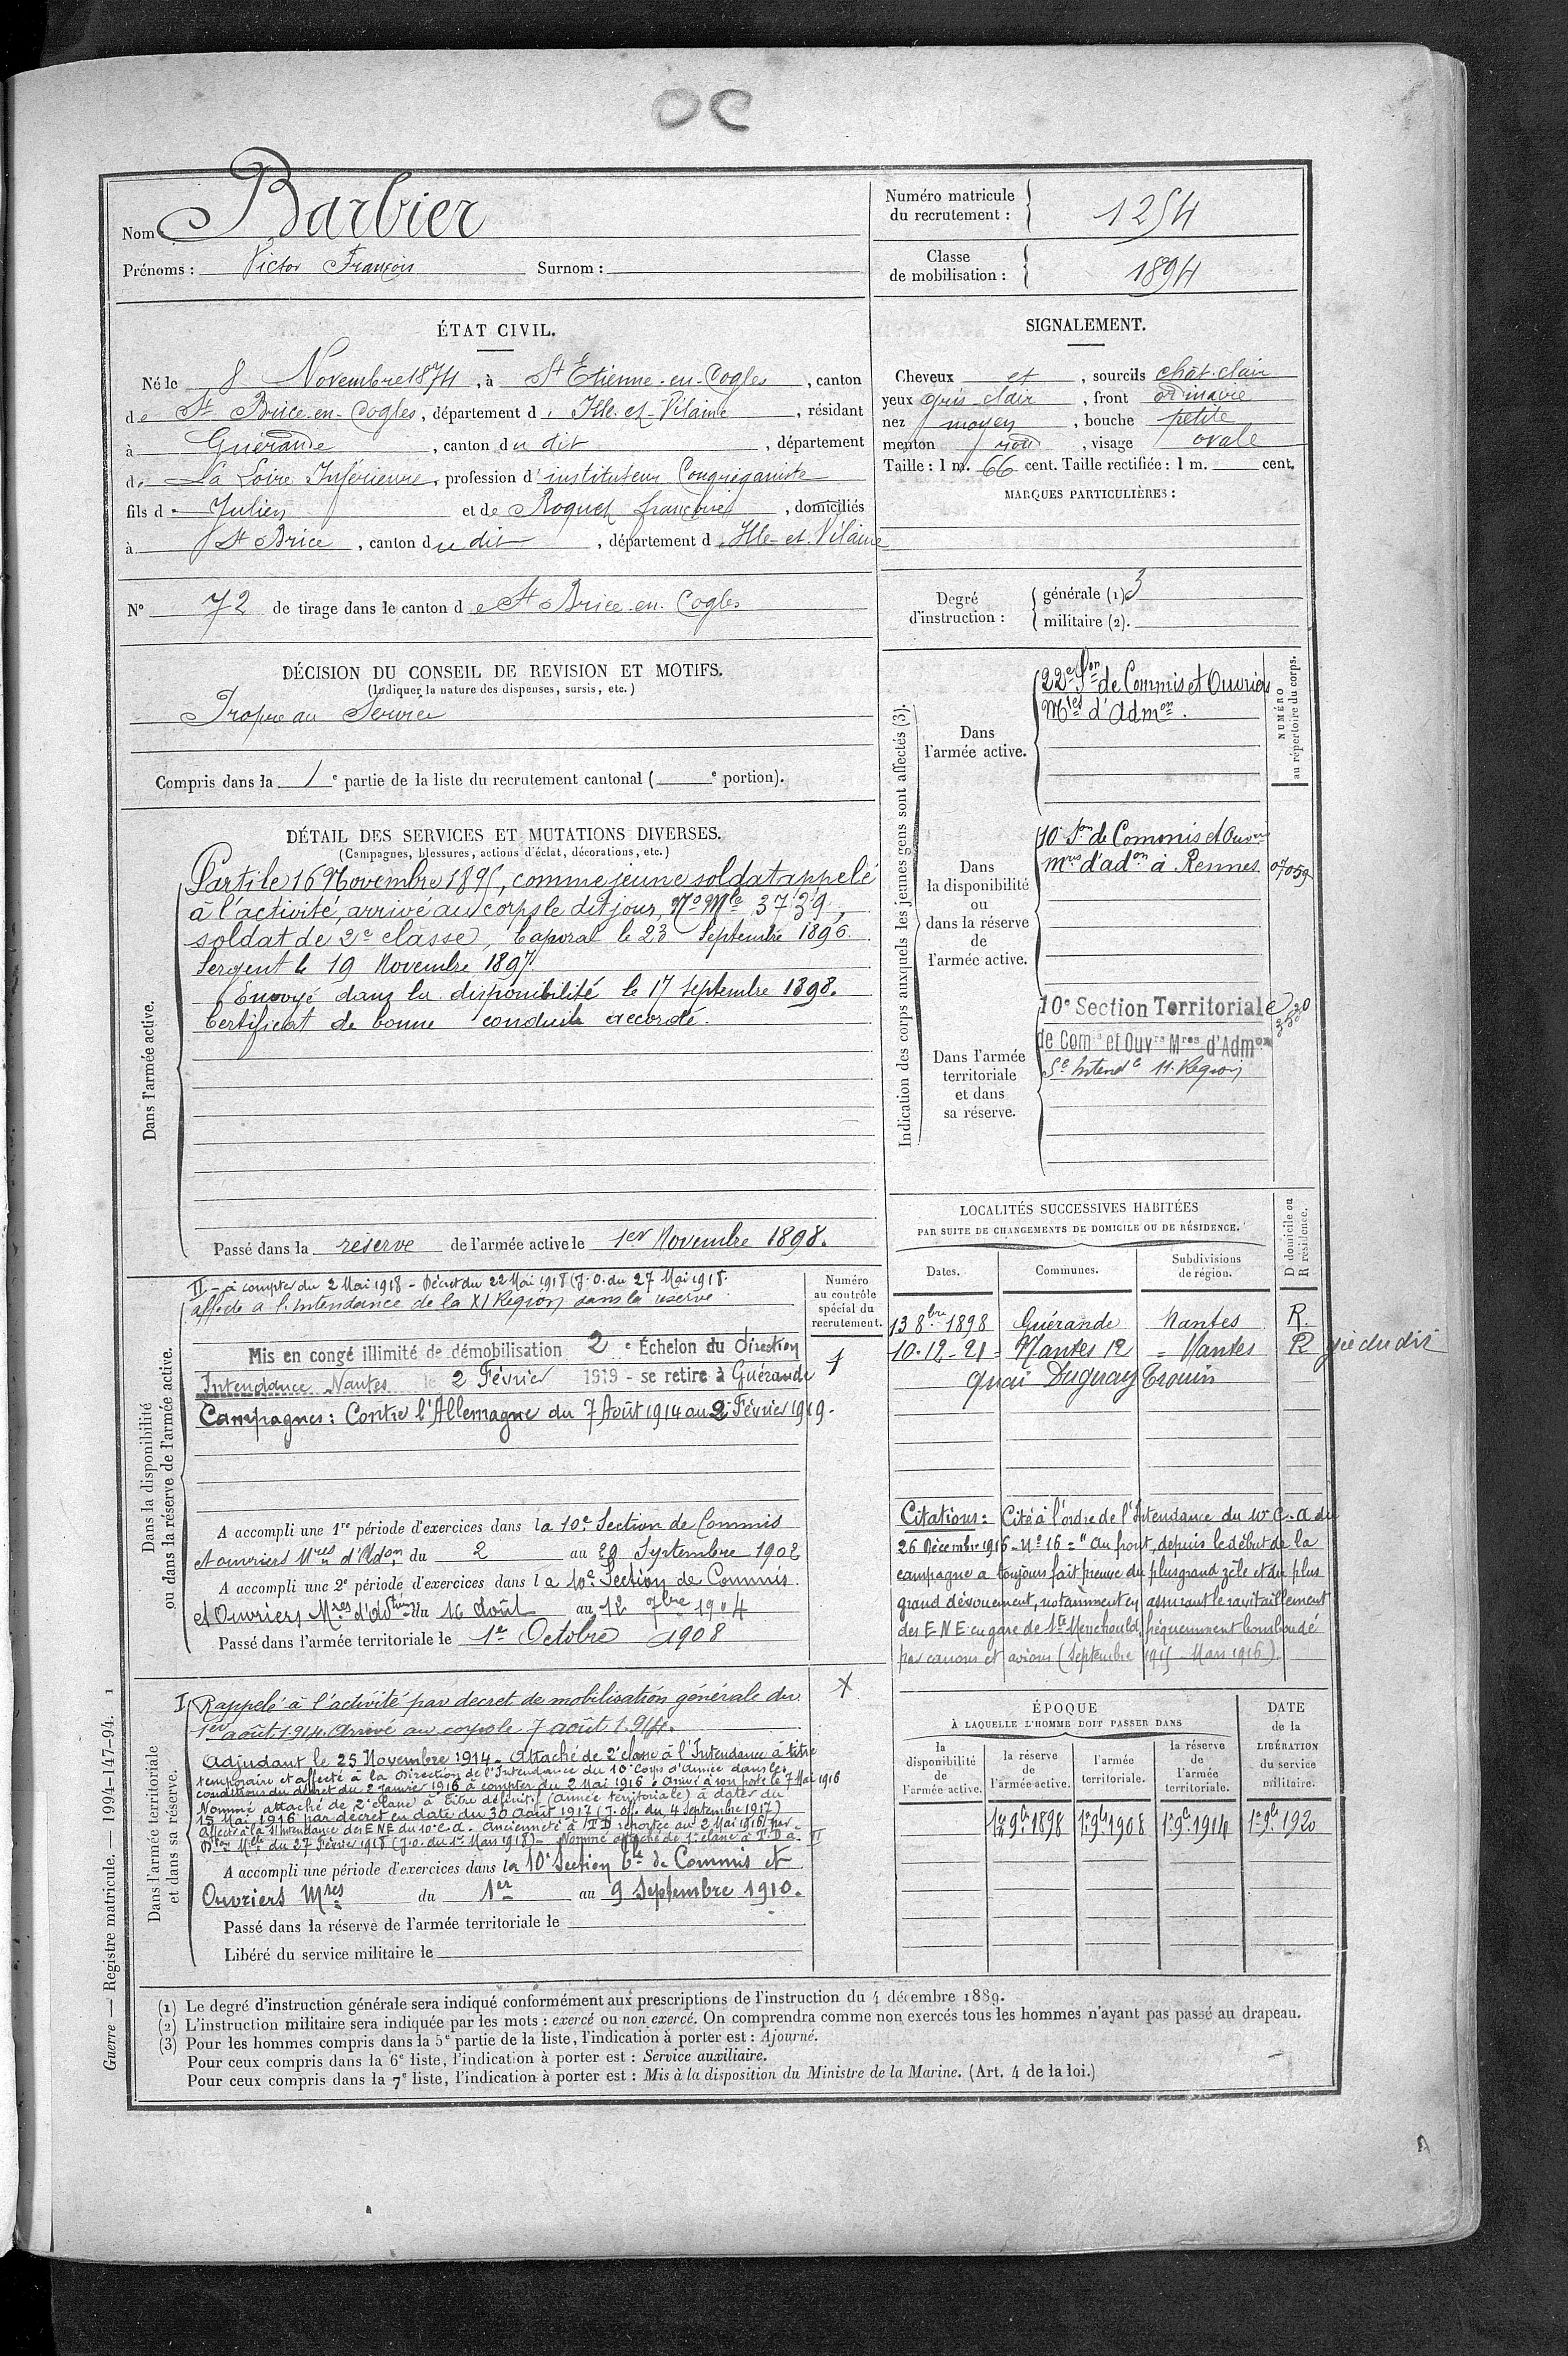 OC
Nom Barbier
Prénoms : Victor François Surnom :
Numéro matricule du recrutement : 1254
Classe de mobilisation : 1894
ÉTAT CIVIL.
Né le 8 Novembre 1874, à St Etienne-en-Cogles, canton
de St Brice-en-Cogles, département d'Ille-et-Vilaine, résidant
à Guérande, canton du dit, département
de La Loire Inférieure, profession d'instituteur Congréganiste
fils de Julien et de Roquet françoise, domiciliés
à St Brice, canton du dit, département d'Ille-et-Vilaine
N° 72 de tirage dans le canton de St Brice-en-Cogles
SIGNALEMENT.
Cheveux et, sourcils chat-clair
yeux gris clair, front ordinaire
nez moyen, bouche petite
menton rond, visage ovale
Taille : 1 m. 66 cent. Taille rectifiée : 1 m. cent.
MARQUES PARTICULIÈRES :
Degré d'instruction : générale (1) 3
militaire (2).
DÉCISION DU CONSEIL DE REVISION ET MOTIFS.
(Indiquer la nature des dispenses, sursis, etc.)
Propre au Service
Compris dans la 1e partie de la liste du recrutement cantonal ( e portion).
DÉTAIL DES SERVICES ET MUTATIONS DIVERSES.
(Campagnes, blessures, actions d'éclat, décorations, etc.)
Dans l'armée active.
Parti le 16 Novembre 1895, comme jeune soldat appelé
à l'activité, arrivé au corps le dit jour, No Mle 3739,
soldat de 2e classe, Caporal le 23 Septembre 1896.
Sergent le 19 Novembre 1897.
Envoyé dans la disponibilité le 17 Septembre 1898.
Certificat de bonne conduite accordé.
Passé dans la réserve de l'armée active le 1er Novembre 1898.
Indication des corps auxquels les jeunes gens sont affectés (3).
NUMÉRO au répertoire du corps.
Dans l'armée active.
22e Son de Commis et Ouvriers
Mres d'Admon.
Dans la disponibilité ou dans la réserve de l'armée active.
10e Son de Commis et Ouvrs
Mres d'adon à Rennes 07059
Dans l'armée territoriale et dans sa réserve.
10e Section Territoriale
de Comis et Ouvrs Mres d'Admon
Sce Intendce 11. Région
Dans la disponibilité ou dans la réserve de l'armée active.
II - à compter du 2 Mai 1918 - Décret du 22 Mai 1918 (J.O. du 27 Mai 1918.
affecté à l'Intendance de la XI Région dans la réserve
Mis en congé illimité de démobilisation 2e Échelon du Direction
Intendance Nantes le 2 Février 1919 - se retire à Guérande
Campagnes : Contre l'Allemagne du 7 Août 1914 au 2 Février 1919.
Numéro au contrôle spécial du recrutement.
1
A accompli une 1re période d'exercices dans la 10e Section de Commis
et ouvriers Mres d'Adon du 2 au 29 Septembre 1902
A accompli une 2e période d'exercices dans la 10e Section de Commis
et Ouvriers Mres d'Adtion du 16 Août au 12 7bre 1904
Passé dans l'armée territoriale le 1er Octobre 1908
LOCALITÉS SUCCESSIVES HABITÉES
PAR SUITE DE CHANGEMENTS DE DOMICILE OU DE RÉSIDENCE.
Dates. Communes. Subdivisions de région. D domicile ou R résidence.
13 8bre 1898 Guérande Nantes R.
10-12-21 = Nantes 12 = Nantes R
Quai Duguay Trouin
Citations : Cité à l'ordre de l'Intendance du 10e C. A du
26 Décembre 1916 - No 16 = "Au front, depuis le début de la
campagne a toujours fait preuve du plus grand zèle et du plus
grand dévouement, notamment en assurant le ravitaillement
des E N E en gare de Ste Menehould, fréquemment bombardé
par canons et avions (Septembre 1915 - Mars 1916).
Dans l'armée territoriale et dans sa réserve.
I Rappelé à l'activité par decret de mobilisation générale du
1er août 1914. Arrivé au corps le 7 août 1914.
Adjudant le 25 Novembre 1914 - Attaché de 2e classe à l'Intendance à titre
temporaire et affecté à la Direction de l'Intendance du 10e Corps d'Armée dans les
conditions du décret du 2 Janvier 1916 à compter du 2 Mai 1916. Arrivé à son poste le 7 Mai 1916
Nommé attaché de 2e classe à titre définitif (Armée territoriale) à dater du
15 Mai 1916 par décret en date du 30 Août 1917 (J. Off. du 4 Septembre 1917)
Affecté à la S/Intendance des E N E du 10e C.A. Ancienneté à T D reportée au 2 Mai 1916 par
Don Melle du 27 Février 1918 (J.O. du 1er Mars 1918) - Nommé attaché de 1e classe à T. D à II
X
A accompli une période d'exercices dans la 10e Section tle de Commis et
Ouvriers Mres du 1er au 9 Septembre 1910.
Passé dans la réserve de l'armée territoriale le
Libéré du service militaire le
ÉPOQUE
À LAQUELLE L'HOMME DOIT PASSER DANS
la disponibilité de l'armée active. la réserve de l'armée active. l'armée territoriale. la réserve de l'armée territoriale. DATE de la LIBÉRATION du service militaire.
1er 9bre 1898 1er 9bre 1908 1er 9bre 1914 1er 9bre 1920
Guerre — Registre matricule. — 1994-147-94. 1
(1) Le degré d'instruction générale sera indiqué conformément aux prescriptions de l'instruction du 4 décembre 1889.
(2) L'instruction militaire sera indiquée par les mots : exercé ou non exercé. On comprendra comme non exercés tous les hommes n'ayant pas passé au drapeau.
(3) Pour les hommes compris dans la 5e partie de la liste, l'indication à porter est : Ajourné.
Pour ceux compris dans la 6e liste, l'indication à porter est : Service auxiliaire.
Pour ceux compris dans la 7e liste, l'indication à porter est : Mis à la disposition du Ministre de la Marine. (Art. 4 de la loi.)